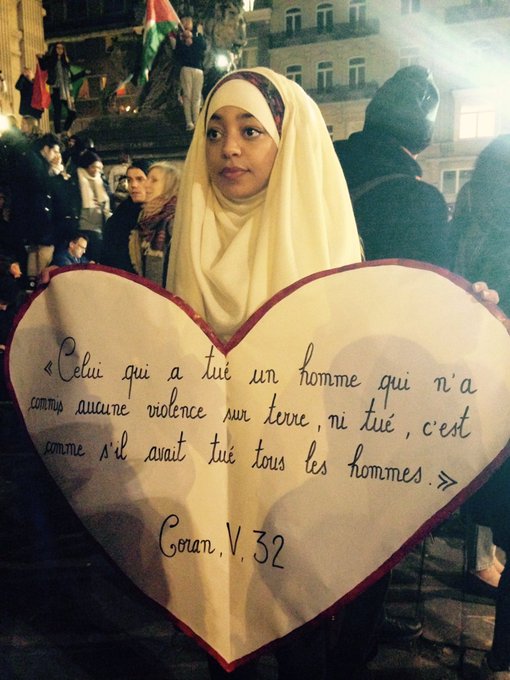 « Celui qui a tué un homme qui n'a
commis aucune violence sur terre, ni tué, c'est
comme s'il avait tué tous les hommes. »
Coran, V, 32